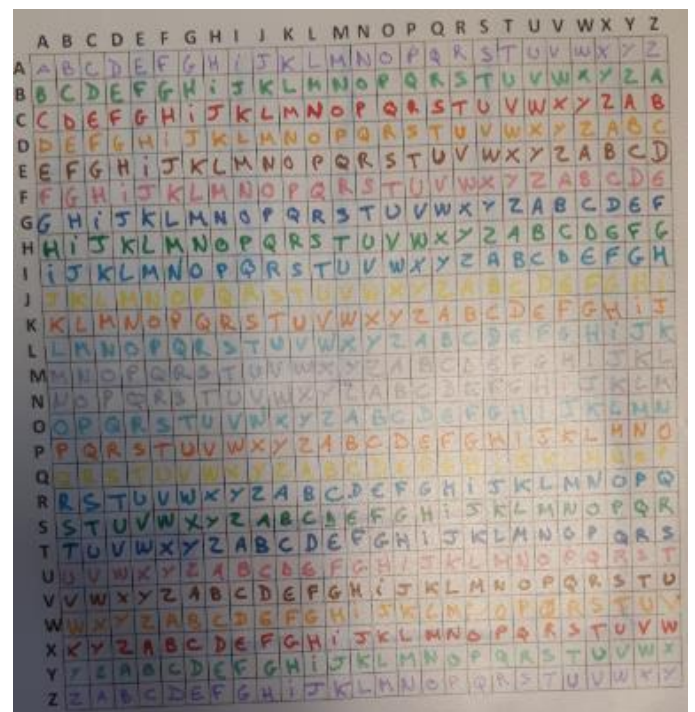 A B C D E F G H I J K L M N O P Q R S T U V W X Y Z
A A B C D E F G H i J K L M N O P Q R S T U V W X Y Z
B B C D E F G H i J K L M N O P Q R S T U V W X Y Z A
C C D E F G H i J K L M N O P Q R S T U V W X Y Z A B
D D E F G H i J K L M N O P Q R S T U V W X Y Z A B C
E E F G H i J K L M N O P Q R S T U V W X Y Z A B C D
F F G H i J K L M N O P Q R S T U V W X Y Z A B C D E
G G H i J K L M N O P Q R S T U V W X Y Z A B C D E F
H H i J K L M N O P Q R S T U V W X Y Z A B C D E F G
I i J K L M N O P Q R S T U V W X Y Z A B C D E F G H
J J K L M N O P Q R S T U V W X Y Z A B C D E F G H i
K K L M N O P Q R S T U V W X Y Z A B C D E F G H i J
L L M N O P Q R S T U V W X Y Z A B C D E F G H i J K
M M N O P Q R S T U V W X Y Z A B C D E F G H I J K L
N N O P Q R S T U V W X Y Z A B C D E F G H I J K L M
O O P Q R S T U V W X Y Z A B C D E F G H i J K L M N
P P Q R S T U V W X Y Z A B C D E F G H i J K L M N O
Q Q R S T U V W X Y Z A B C D E F G H i J K L M N O P
R R S T U V W X Y Z A B C D E F G H i J K L M N O P Q
S S T U V W X Y Z A B C D E F G H i J K L M N O P Q R
T T U V W X Y Z A B C D E F G H i J K L M N O P Q R S
U U V W X Y Z A B C D E F G H i J K L M N O P Q R S T
V V W X Y Z A B C D E F G H i J K L M N O P Q R S T U
W W X Y Z A B C D E F G H i J K L M N O P Q R S T U V
X X Y Z A B C D E F G H i J K L M N O P Q R S T U V W
Y Y Z A B C D E F G H i J K L M N O P Q R S T U V W X
Z Z A B C D E F G H i J K L M N O P Q R S T U V W X Y